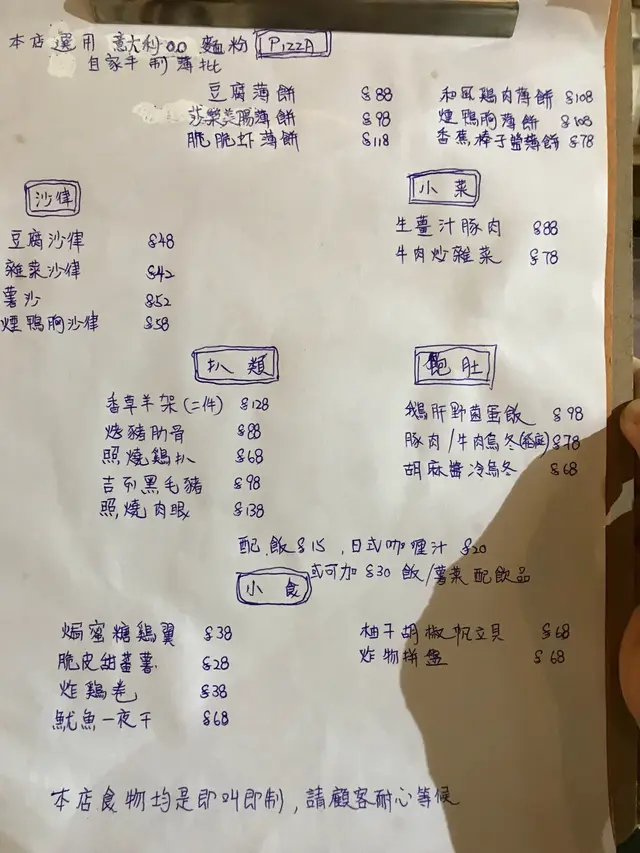 本店選用意大利00麵粉 PIZZA
自家手制薄批
豆腐薄餅 $88
莎樂美腸薄餅 $98
脆脆虾薄餅 $118
和風鷄肉薄餅 $108
煙鴨胸薄餅 $108
香蕉榛子醬薄餅 $78
沙律
豆腐沙律 $48
雜菜沙律 $42
薯沙 $52
煙鴨胸沙律 $58
小菜
生薑汁豚肉 $88
牛肉炒雜菜 $78
扒類
香草羊架(二件) $128
烤豬肋骨 $88
照燒鷄扒 $68
吉列黑毛豬 $98
照燒肉眼 $138
飽肚
鵝肝野菌蛋飯 $98
豚肉/牛肉烏冬 $78
胡麻醬冷烏冬 $68
配飯$15,日式咖喱汁 $20
或可加$30飯/薯菜配飲品
小食
焗蜜糖鷄翼 $38
脆皮甜蕃薯 $28
炸鷄卷 $38
魷魚一夜干 $68
柚子胡椒帆立貝 $68
炸物拼盤 $68
本店食物均是即叫即制,請顧客耐心等候